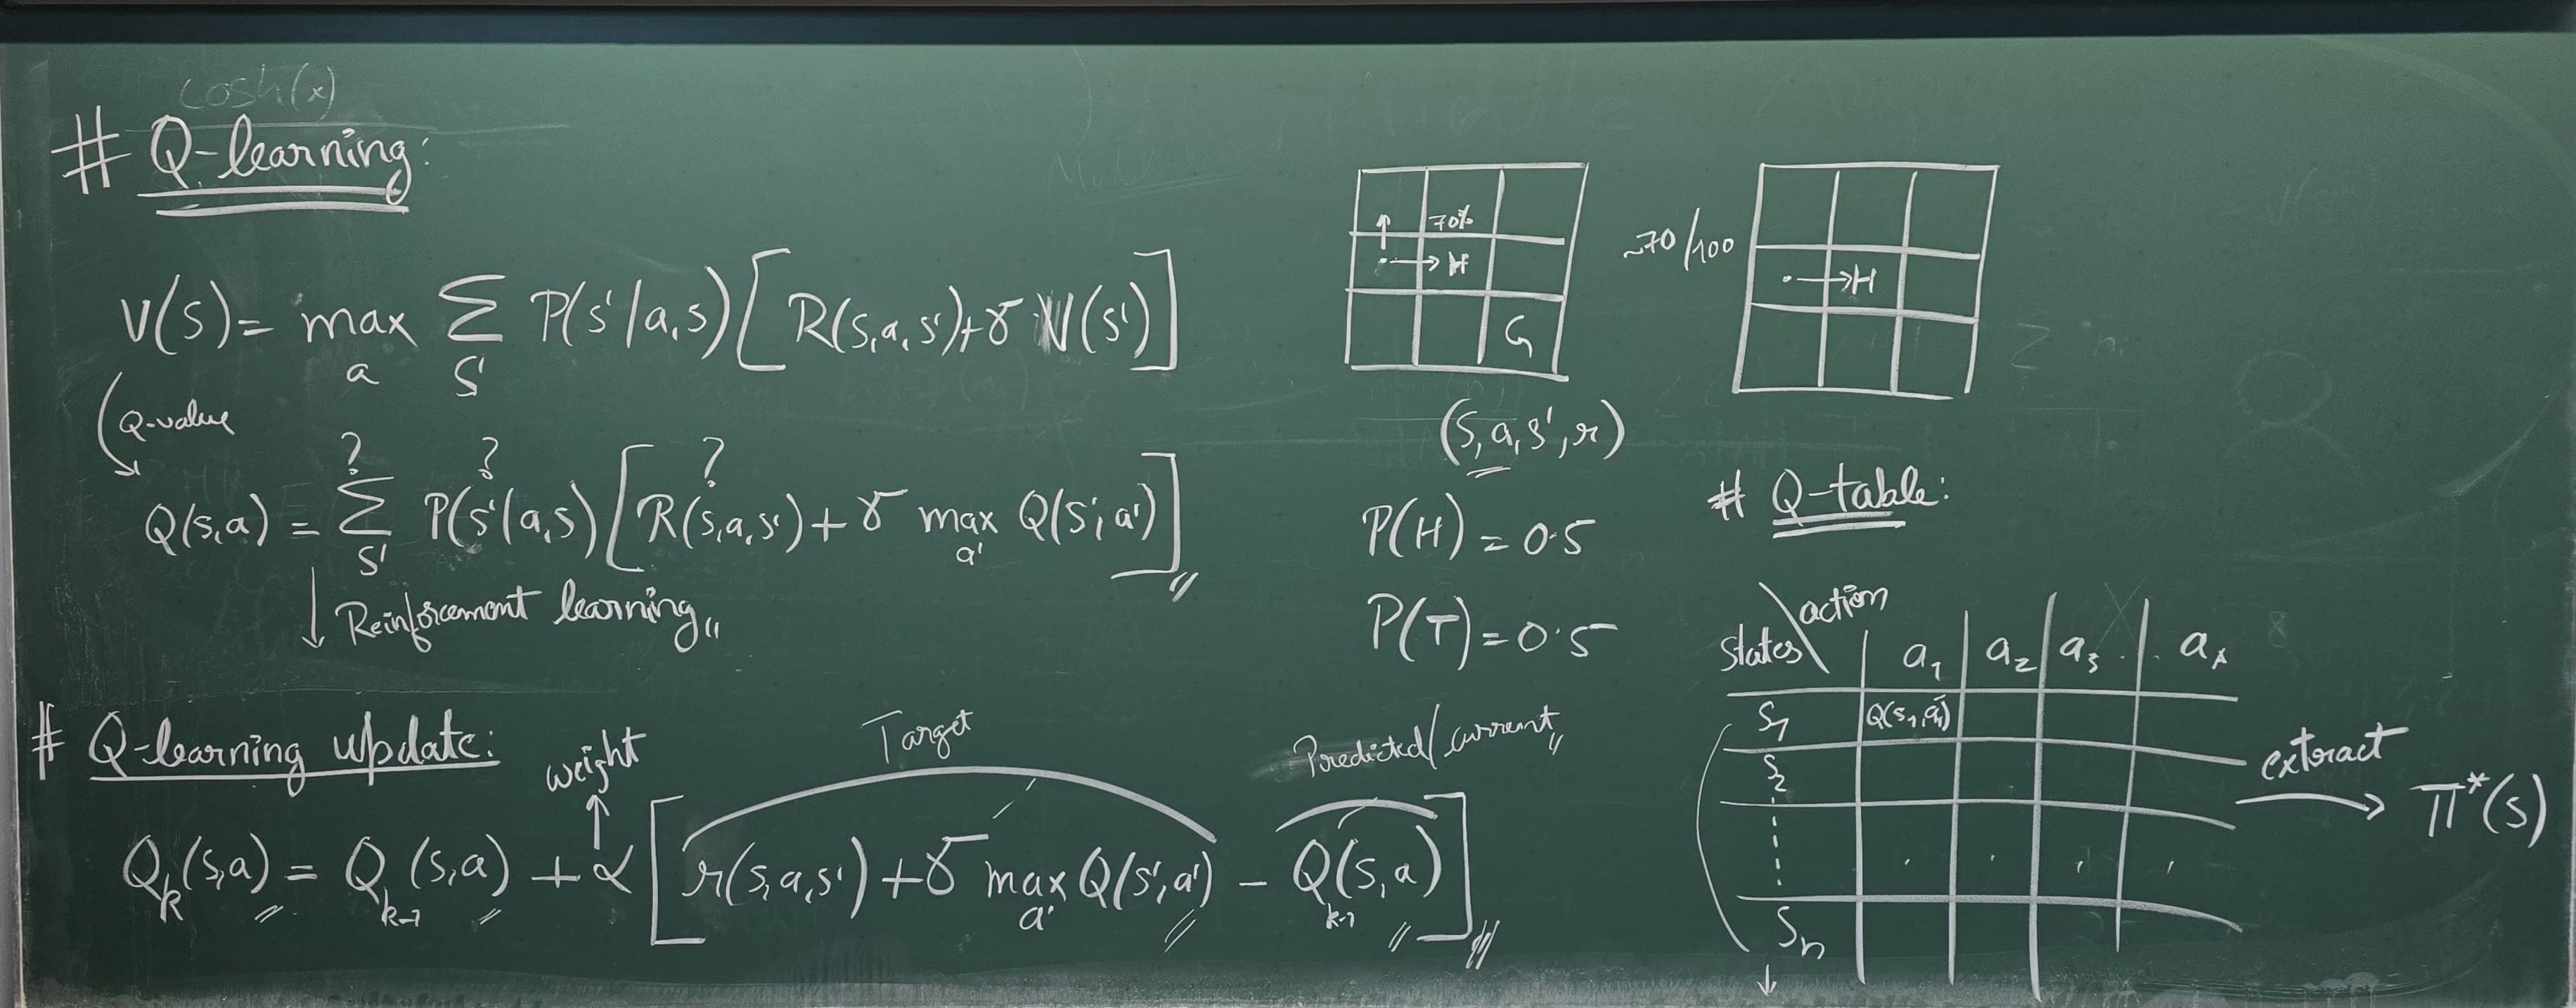 cosh(x)
# Q-learning:
V(s) = max_a Σ_s' P(s'|a,s) [R(s,a,s') + γ V(s')]
Q-value
? ? ?
Q(s,a) = Σ_s' P(s'|a,s) [R(s,a,s') + γ max_a' Q(s',a')]
↓ Reinforcement learning
# Q-learning update:
weight
Target
Predicted/current
Q_k(s,a) = Q_k-1(s,a) + α [r(s,a,s') + γ max_a' Q(s',a') - Q_k-1(s,a)]
70%
→ H
G
~70/100
→ H
(s,a,s',r)
P(H) = 0.5
P(T) = 0.5
# Q-table:
states \ action a₁ a₂ a₃ . . a_A
S₁ Q(s₁,a₁)
S₂
Sₙ
extract
π*(s)